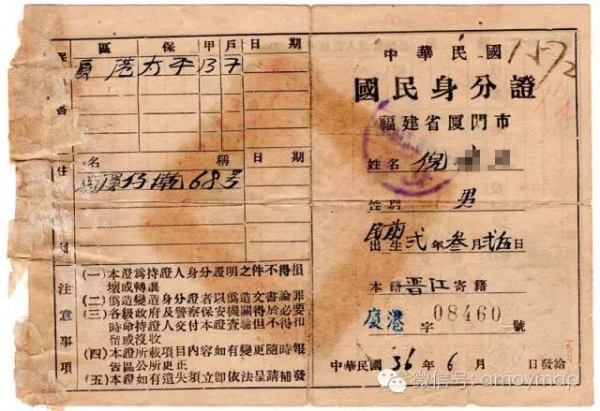 中華民國
國民身分證
福建省厦門市
姓名 倪
性別 男
民前
出生 弍年叁月弍五日
本籍 晋江 寄籍
厦港 字 08460 號
中華民國 36 年 6 月 日發給
區 保 甲 戶 日 期
厦港 太平 13 7
名 稱 日 期
68号
注意事項
(一)本證爲持證人身分證明之件不得損
壞或轉讓
(二)僞造變造身分證者以僞造文書論罪
(三)各級政府及警察保安機關得於必要
時命持證人交付本證查驗但不得扣
留或沒收
(四)本證所載項目内容如有變更隨時報
省區公所更正
(五)本證如有遺失須立即依法呈請補發
微信号: amoymap